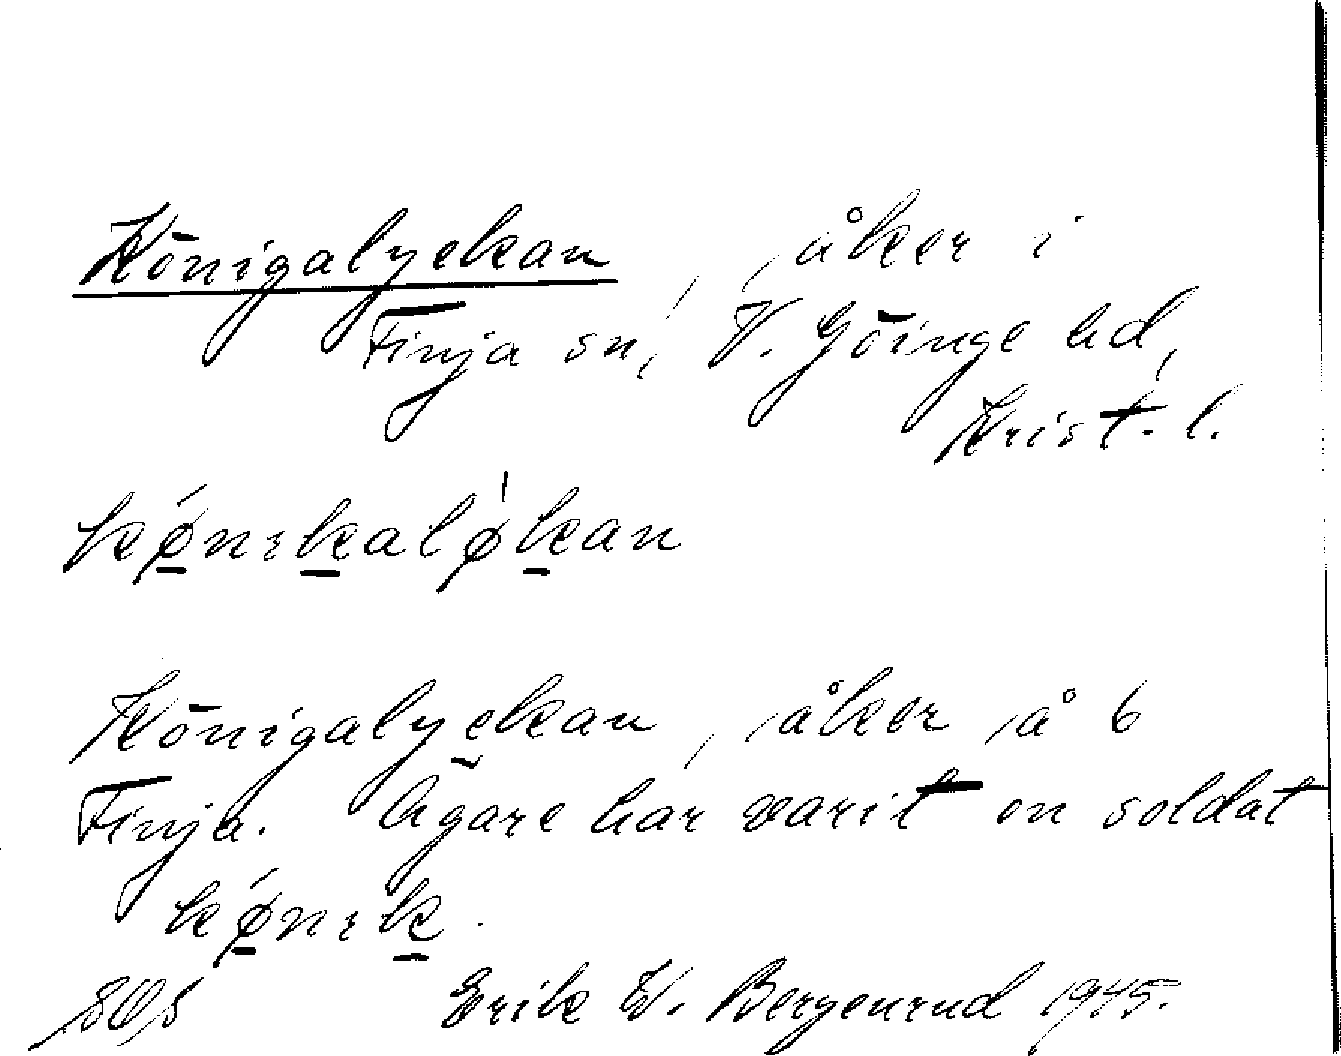 Königalyckan, åker i
Finja sn, V. Göinge hd,
Krist. l.
kǿnıkalø̍kan
Königalyckan, åker å 6
Finja. Ägare har varit en soldat
kǿnık.
Erik W. Bergenrud 1945.